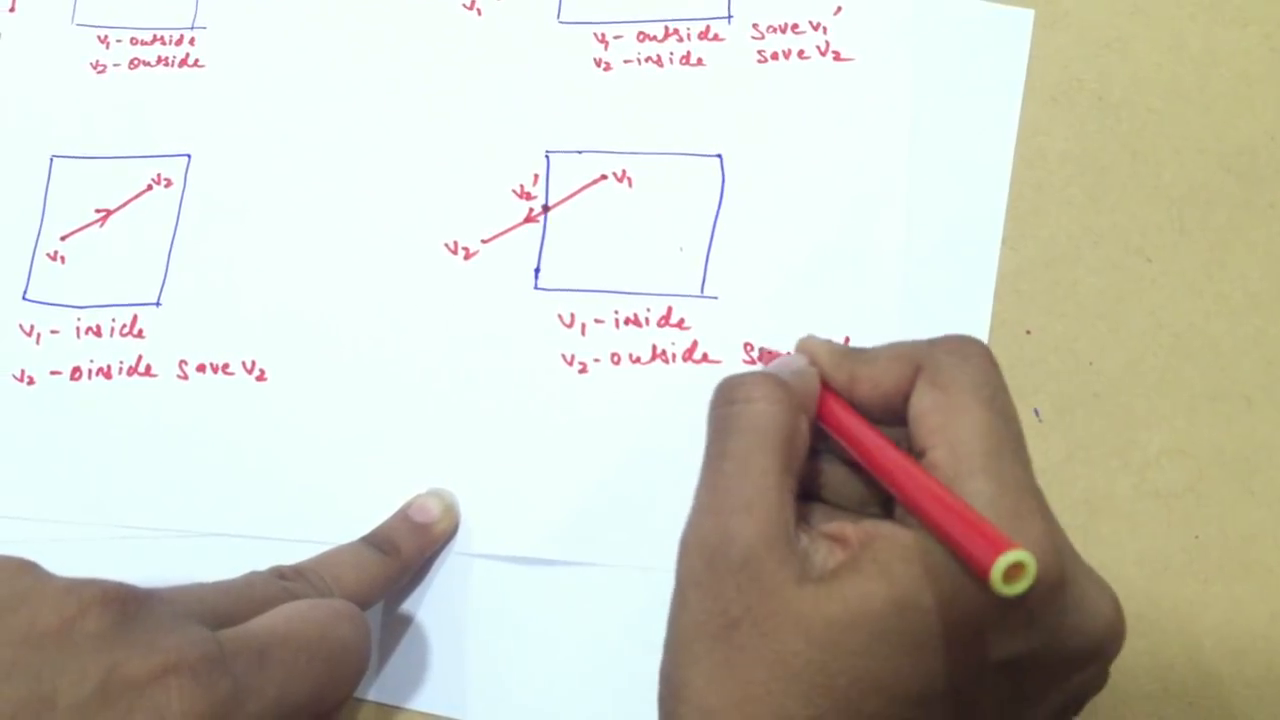 v₁
v₁ - outside
v₂ - outside
v₁ - outside save v₁'
v₂ - inside save v₂
v₂
v₁
v₁ - inside
v₂ - oinside save v₂
v₂'
v₁
v₂
v₁ - inside
v₂ - outside